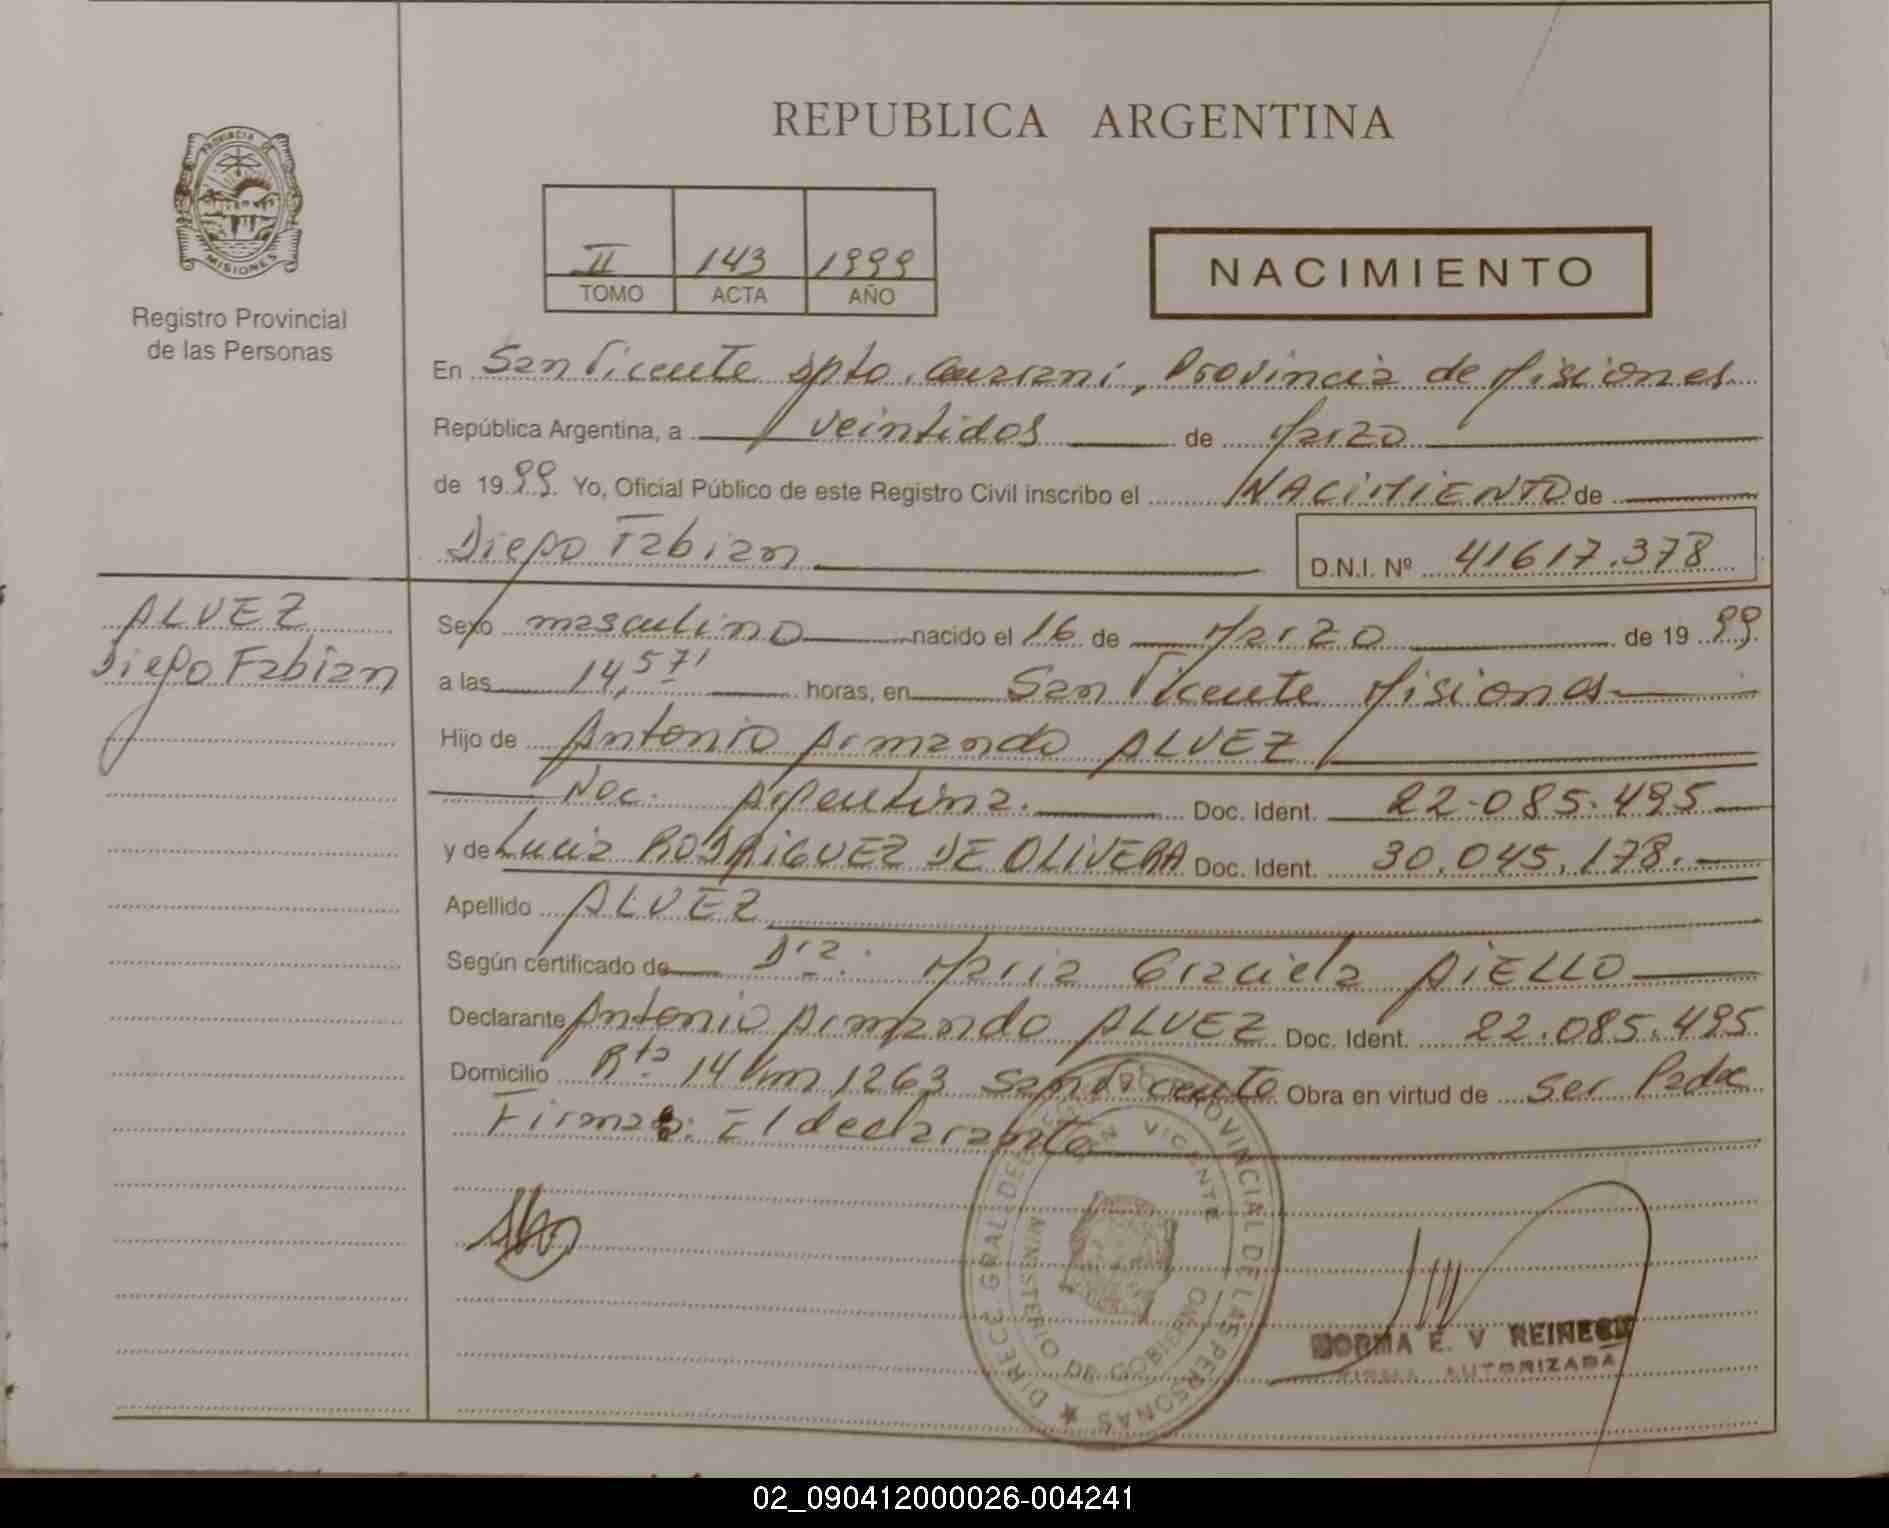 REPUBLICA ARGENTINA
PROVINCIA DE
MISIONES
Registro Provincial
de las Personas
II 143 1999
TOMO ACTA AÑO
NACIMIENTO
En San Vicente Dpto. Guarani, Provincia de Misiones
República Argentina, a veintidos de Marzo
de 1999. Yo, Oficial Público de este Registro Civil inscribo el NACIMIENTO de
Diego Fabian
D.N.I. Nº 41617.378
ALVEZ
Diego Fabian
Sexo masculino nacido el 16 de Marzo de 1999.
a las 14,57' horas, en San Vicente Misiones
Hijo de Antonio Armando ALVEZ
Nac. Argentina. Doc. Ident. 22.085.495
y de Lucia RODRIGUEZ DE OLIVERA Doc. Ident. 30.045.178.
Apellido ALVEZ
Según certificado de Dra. Maria Graciela AIELLO
Declarante Antonio Armando ALVEZ Doc. Ident. 22.085.495
Domicilio Rta 14 Km 1263 San Vicente Obra en virtud de ser Padre
Firma: El declarante
DIRECC. GRAL. DEL REGISTRO PROVINCIAL DE LAS PERSONAS
SAN VICENTE
MINISTERIO DE GOBIERNO
NORMA E. V REINECK
FIRMA AUTORIZADA
02_090412000026-004241